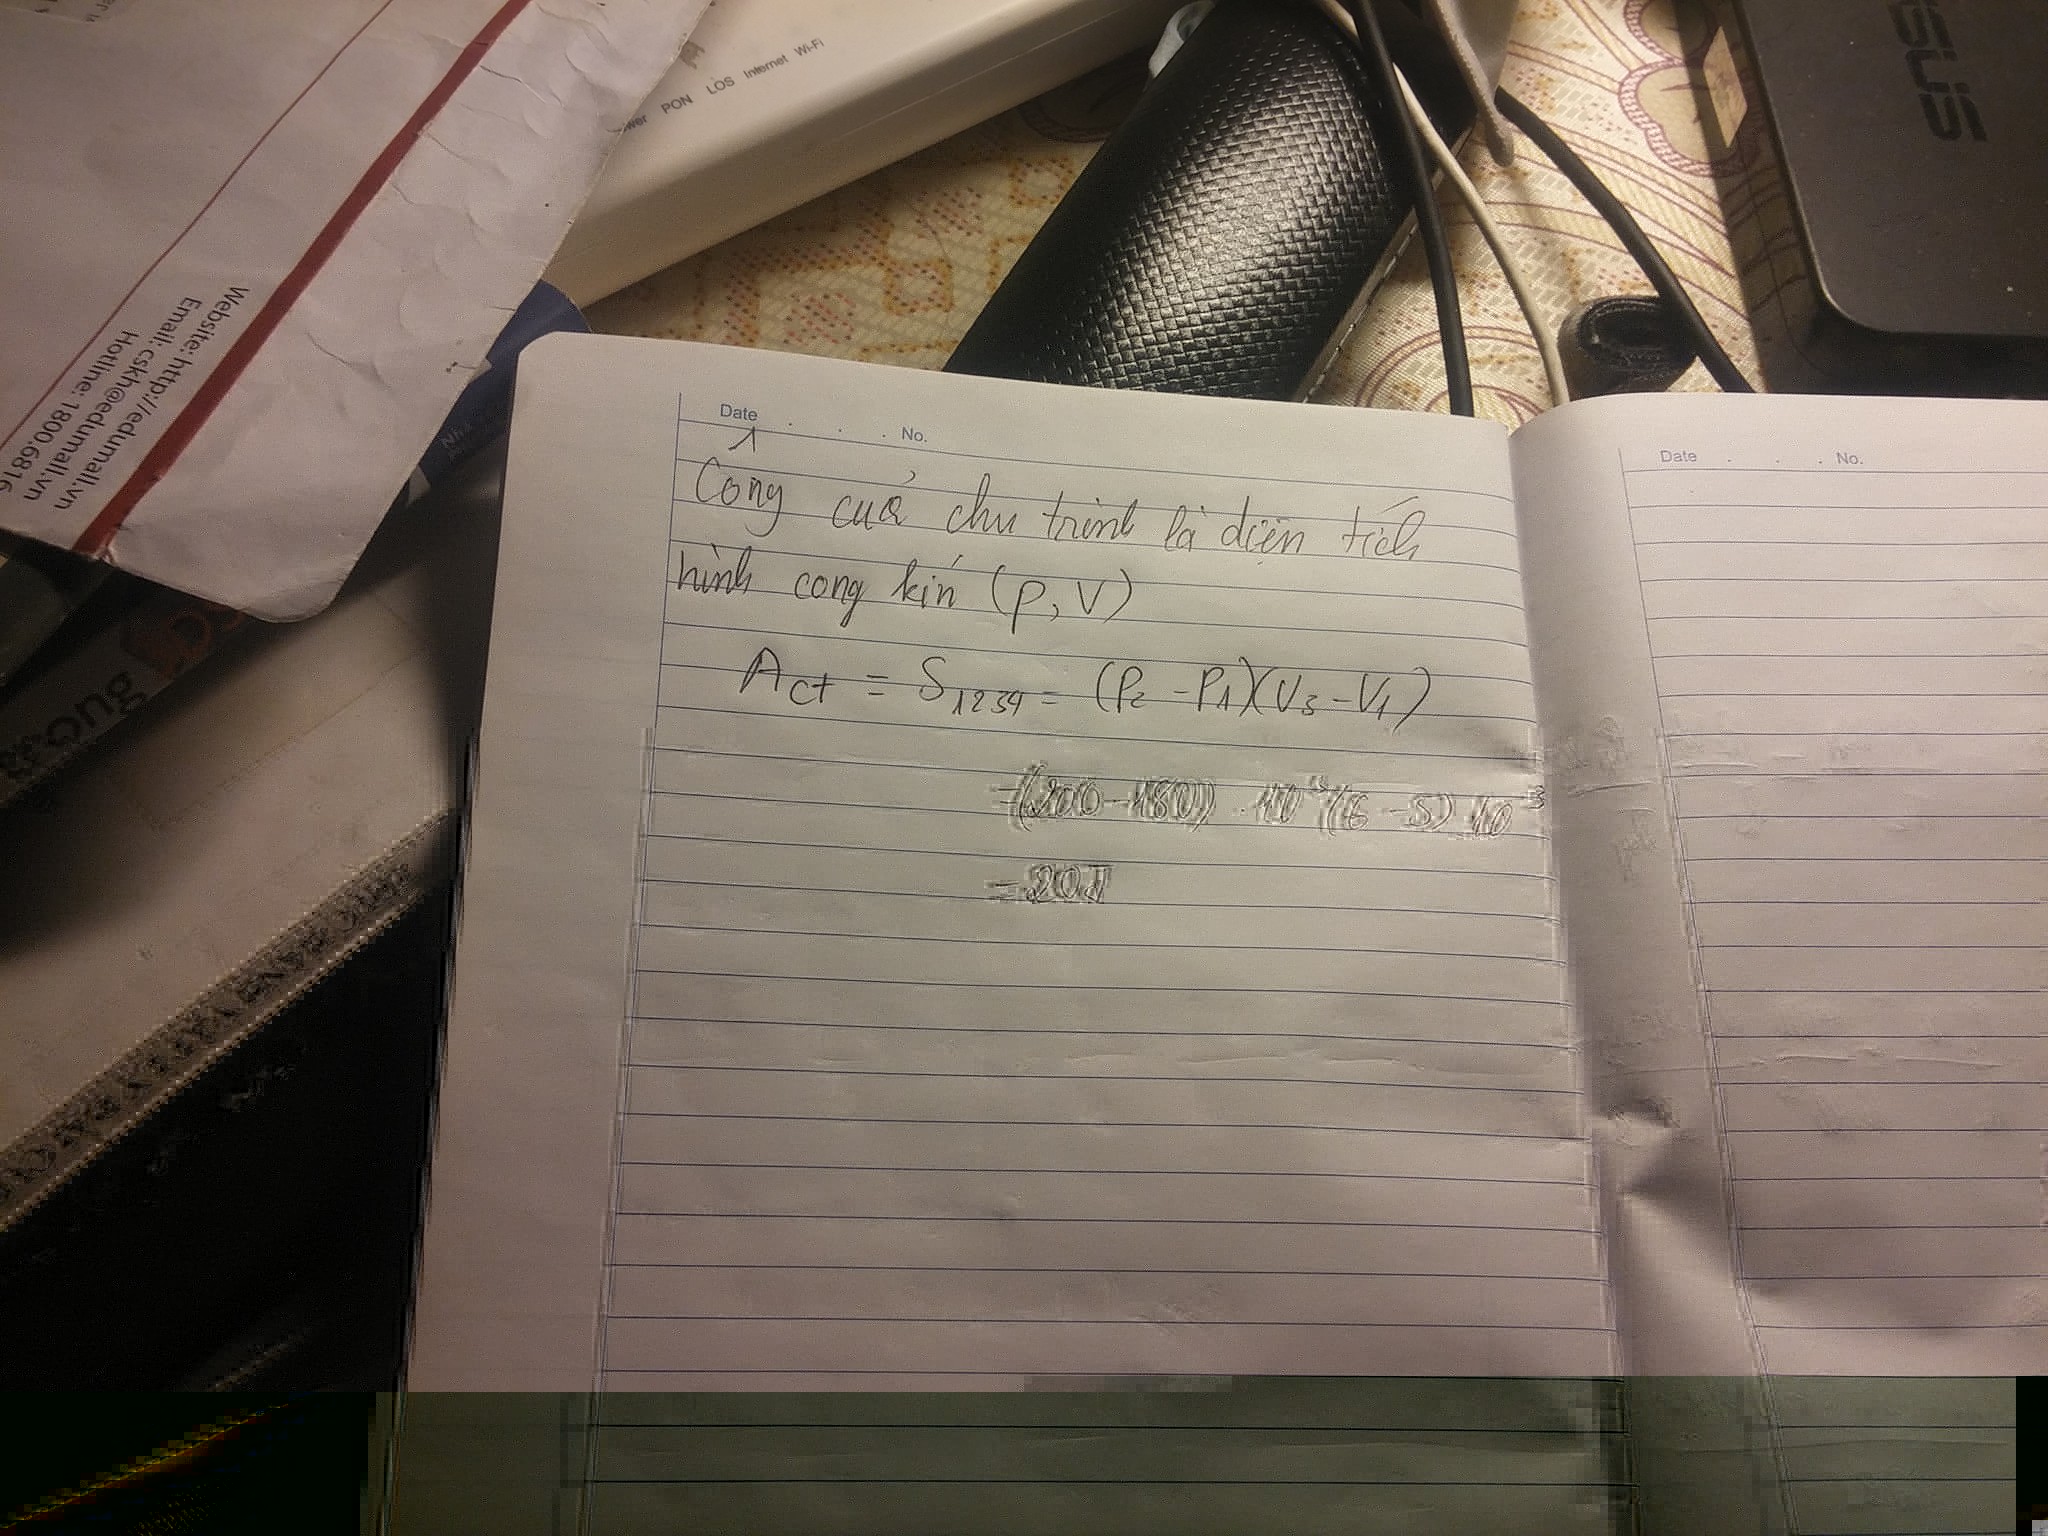 Power PON LOS Internet Wi-Fi
SUS
Website: http://edumall.vn
Email: cskh@edumall.vn
Hotline: 1800.6816
Date . . . No.
Date . . . No.
Công của chu trình là diện tích
hình cong kín (p, V)
A ct = S 1234 = (P2 - P1)(V3 - V1)
=(200-180) . 10³(6-5) 10⁻³
= 20J